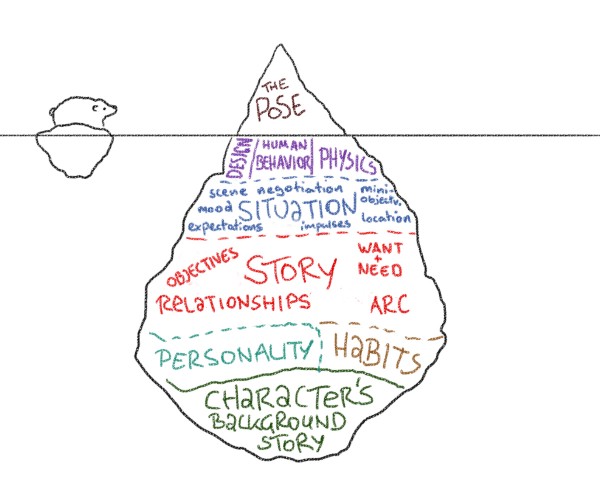 THE
POSE
DESIGN
HUMAN
BEHAVIOR
PHYSICS
scene negotiation
mini-
objectv.
mood
SITUATION
location
expectations
impulses
OBJECTIVES
STORY
WANT
+
NEED
RELATIONSHIPS
ARC
PERSONALITY
HABITS
CHARACTER'S
BACKGROUND
STORY